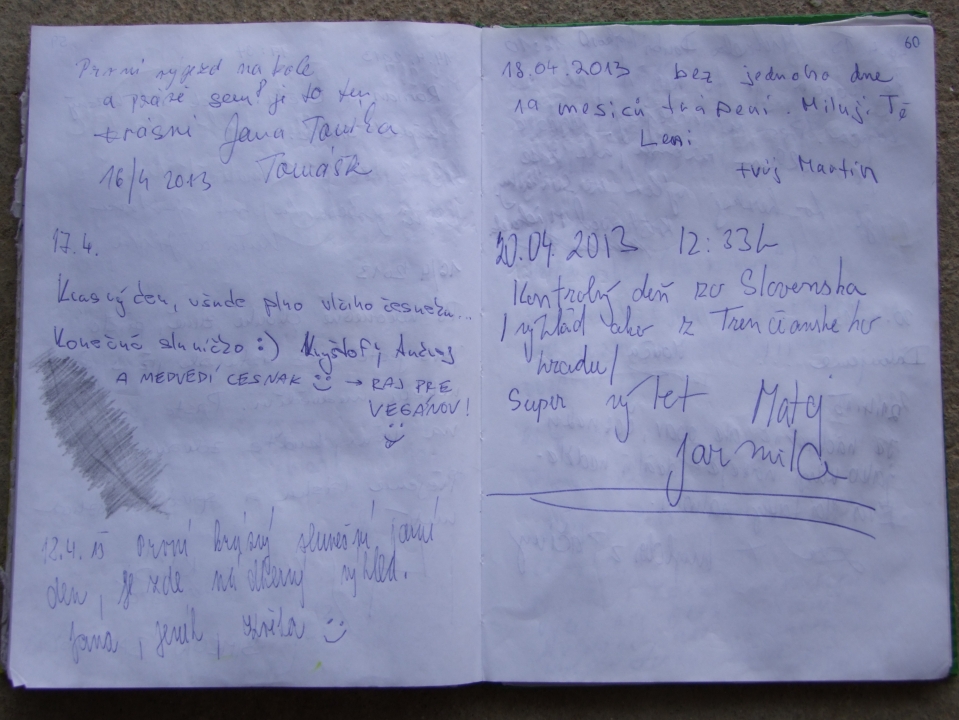 První vyjezd na kole
a právě sem! je to tu
krásní Jana
16/4 2013 Tomášk
17.4.
Krasný den, všude plno vlčího česneku...
Konečně sluníčko :) Kryštof,
A MEDVĚDÍ CESNAK → RAJ PRE
VEGÁNOV!
12.4. 13 první krásný slunečný jarní
den, je zde nádherný výhled.
Jana, Jeník,
60
18.04.2013 bez jednoho dne
měsíců trápení. Miluji Tě
Leni
tvůj Martin
20.04.2013 12:33h
Kontrolný deň zo Slovenska
/výhlád ako z Trenčianskeho
hradu/
Super výlet Matej
Jarmila